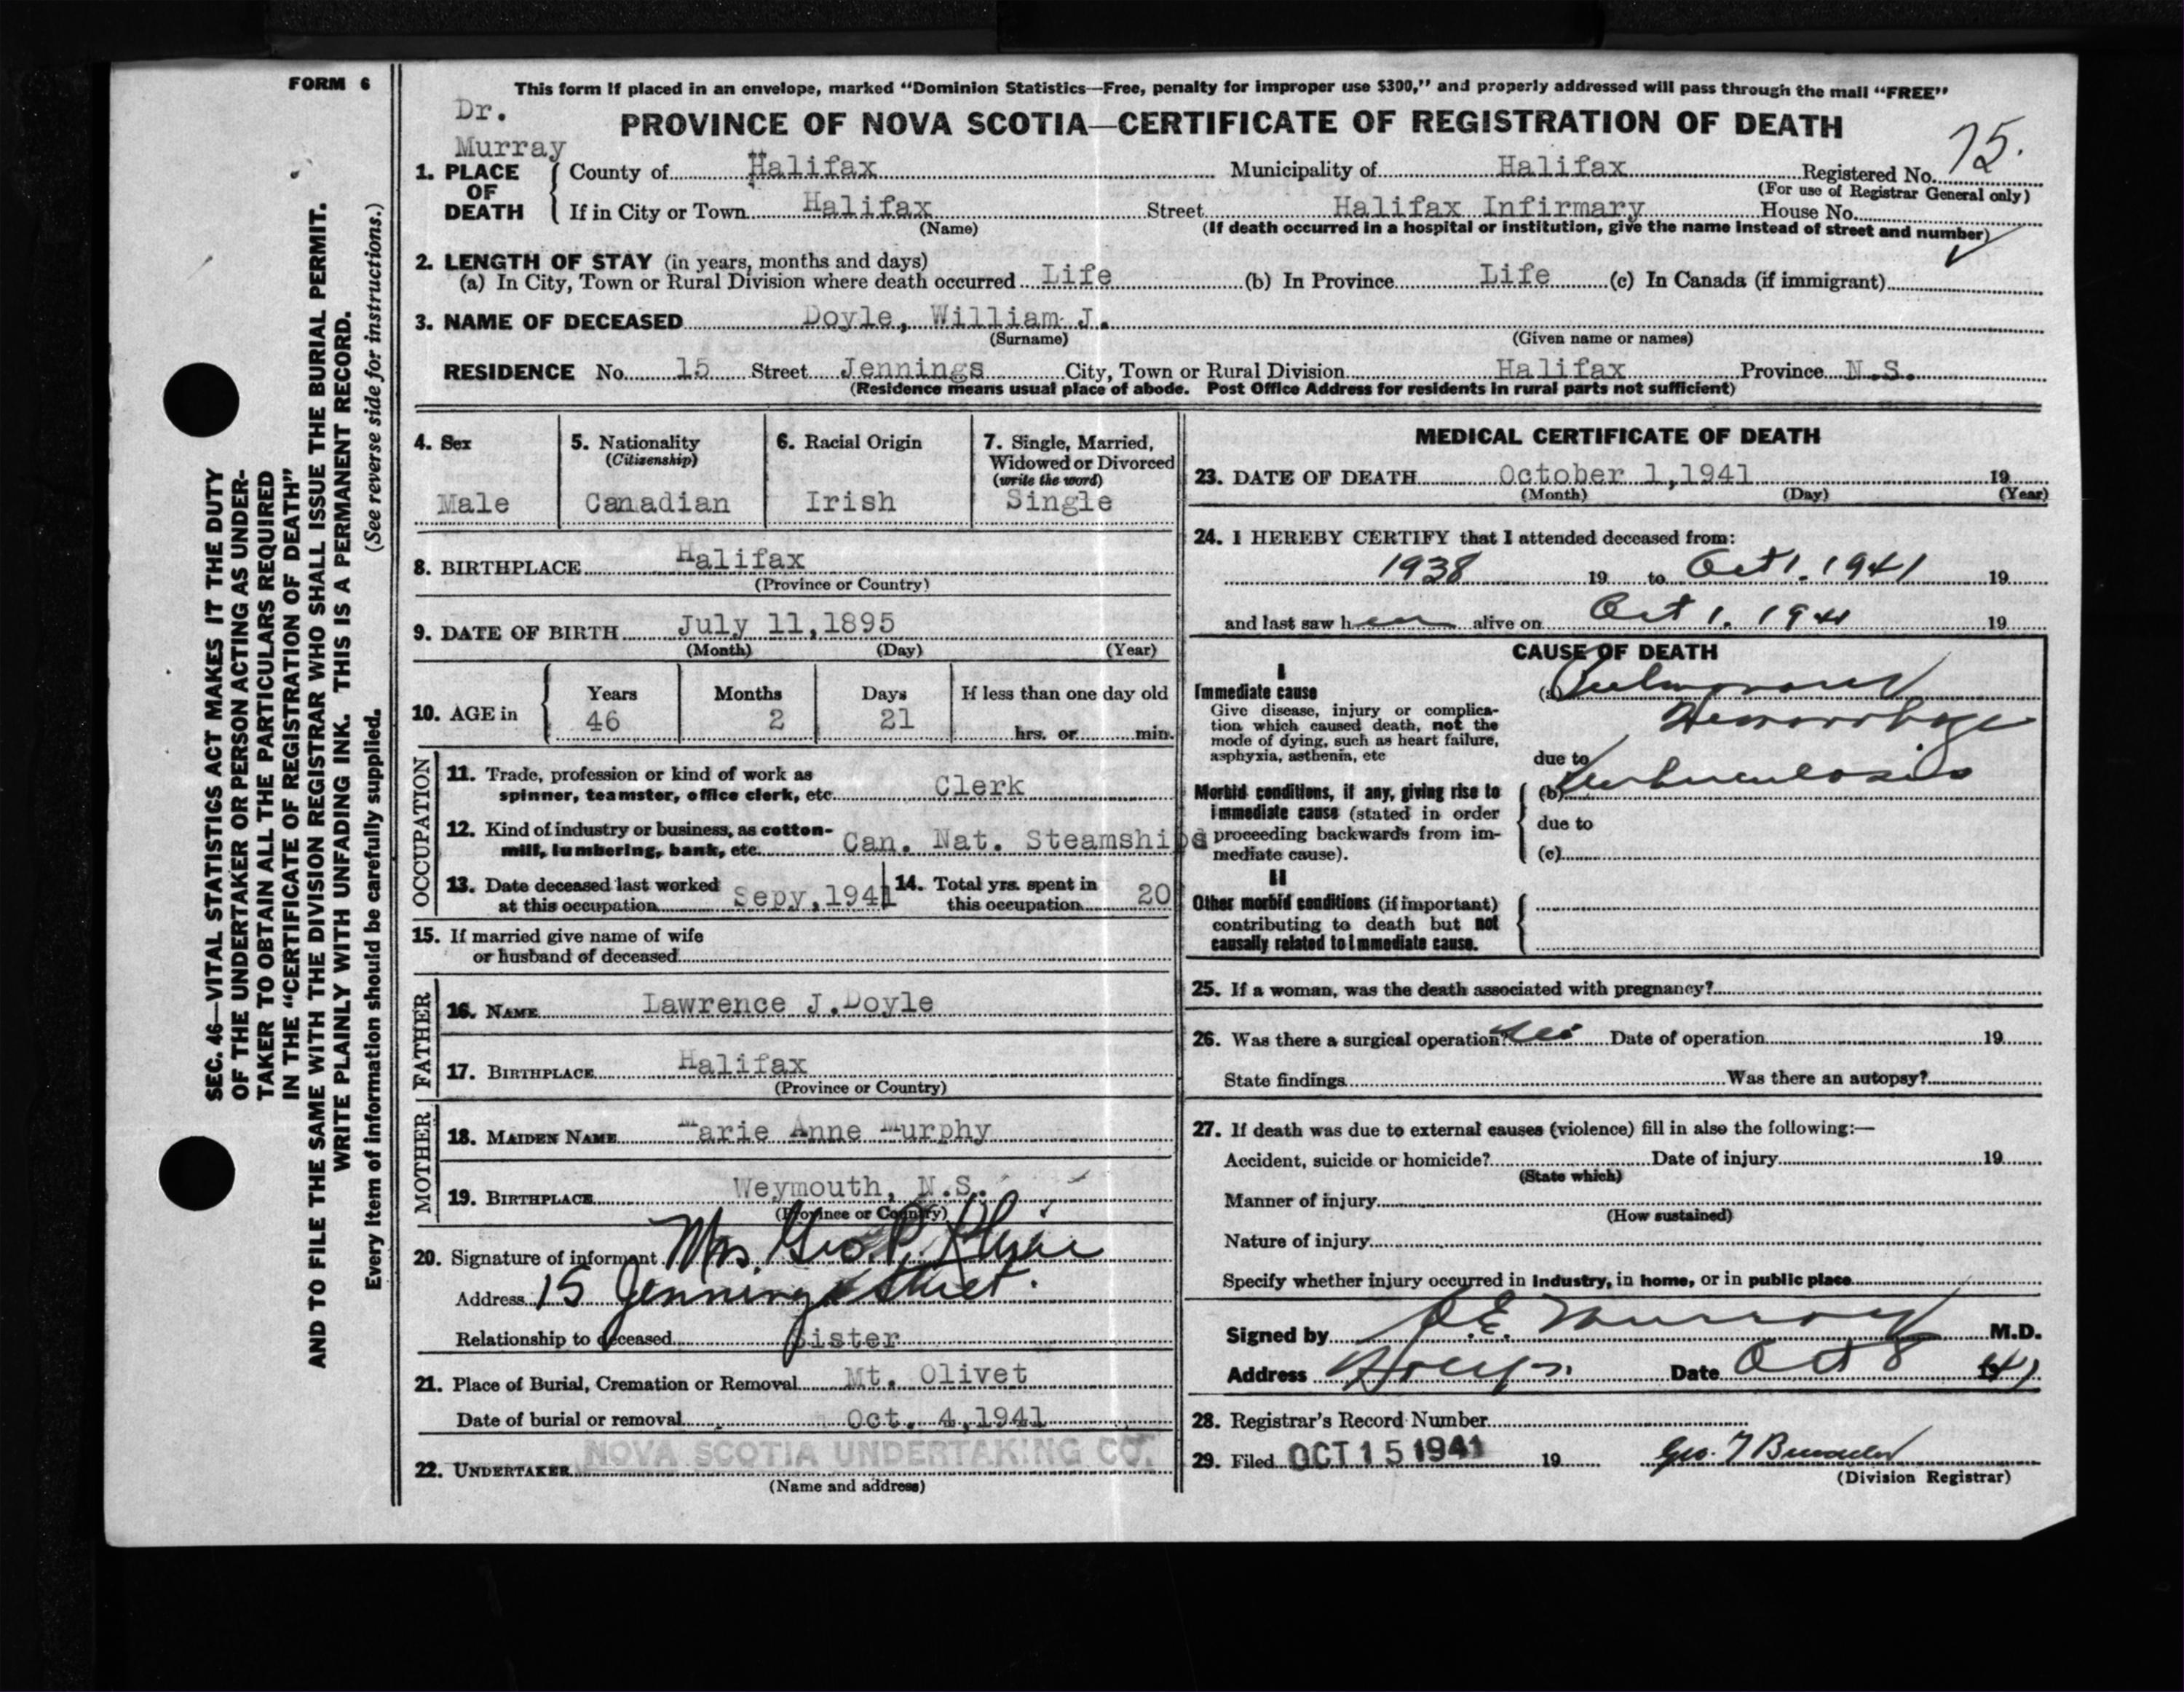 FORM 6
This form if placed in an envelope, marked “Dominion Statistics—Free, penalty for improper use $300,” and properly addressed will pass through the mail “FREE”
Dr.
Murray
PROVINCE OF NOVA SCOTIA—CERTIFICATE OF REGISTRATION OF DEATH
75.
1. PLACE OF DEATH County of Halifax Municipality of Halifax Registered No.
(For use of Registrar General only)
If in City or Town Halifax Street Halifax Infirmary House No.
(Name) (If death occurred in a hospital or institution, give the name instead of street and number)
2. LENGTH OF STAY (in years, months and days)
(a) In City, Town or Rural Division where death occurred Life (b) In Province Life (c) In Canada (if immigrant)
3. NAME OF DECEASED Doyle, William J.
(Surname) (Given name or names)
RESIDENCE No. 15 Street Jennings City, Town or Rural Division Halifax Province N.S.
(Residence means usual place of abode. Post Office Address for residents in rural parts not sufficient)
4. Sex
Male
5. Nationality
(Citizenship)
Canadian
6. Racial Origin
Irish
7. Single, Married,
Widowed or Divorced
(write the word)
Single
8. BIRTHPLACE Halifax
(Province or Country)
9. DATE OF BIRTH July 11, 1895
(Month) (Day) (Year)
10. AGE in Years Months Days If less than one day old
46 2 21 hrs. or min.
OCCUPATION
11. Trade, profession or kind of work as
spinner, teamster, office clerk, etc. Clerk
12. Kind of industry or business, as cotton-
mill, lumbering, bank, etc. Can. Nat. Steamships
13. Date deceased last worked
at this occupation Sepy, 1941
14. Total yrs. spent in
this occupation 20
15. If married give name of wife
or husband of deceased
FATHER
16. NAME Lawrence J. Doyle
17. BIRTHPLACE Halifax
(Province or Country)
MOTHER
18. MAIDEN NAME Marie Anne Murphy
19. BIRTHPLACE Weymouth, N.S.
(Province or Country)
20. Signature of informant Mrs. Geo. P.
Address 15 Jennings Street.
Relationship to deceased Sister
21. Place of Burial, Cremation or Removal Mt. Olivet
Date of burial or removal Oct. 4, 1941
22. UNDERTAKER NOVA SCOTIA UNDERTAKING CO.
(Name and address)
MEDICAL CERTIFICATE OF DEATH
23. DATE OF DEATH October 1, 1941 19
(Month) (Day) (Year)
24. I HEREBY CERTIFY that I attended deceased from:
1938 19 to Oct 1. 1941 19
and last saw h alive on Oct 1. 1941 19
CAUSE OF DEATH
I
Immediate cause
Give disease, injury or complica-
tion which caused death, not the
mode of dying, such as heart failure,
asphyxia, asthenia, etc
(a) Pulmonary
Hemorrhage
due to
Morbid conditions, if any, giving rise to
immediate cause (stated in order
proceeding backwards from im-
mediate cause).
(b) Tuberculosis
due to
(c)
II
Other morbid conditions (if important)
contributing to death but not
causally related to immediate cause.
25. If a woman, was the death associated with pregnancy?
26. Was there a surgical operation? Date of operation 19
State findings Was there an autopsy?
27. If death was due to external causes (violence) fill in also the following:—
Accident, suicide or homicide? Date of injury 19
(State which)
Manner of injury
(How sustained)
Nature of injury
Specify whether injury occurred in industry, in home, or in public place
Signed by J.E. Murray M.D.
Address Date Oct 8 1941
28. Registrar's Record Number
29. Filed OCT 15 1941 19
(Division Registrar)
SEC. 46—VITAL STATISTICS ACT MAKES IT THE DUTY
OF THE UNDERTAKER OR PERSON ACTING AS UNDER-
TAKER TO OBTAIN ALL THE PARTICULARS REQUIRED
IN THE “CERTIFICATE OF REGISTRATION OF DEATH”
AND TO FILE THE SAME WITH THE DIVISION REGISTRAR WHO SHALL ISSUE THE BURIAL PERMIT.
WRITE PLAINLY WITH UNFADING INK. THIS IS A PERMANENT RECORD.
Every item of information should be carefully supplied. (See reverse side for instructions.)